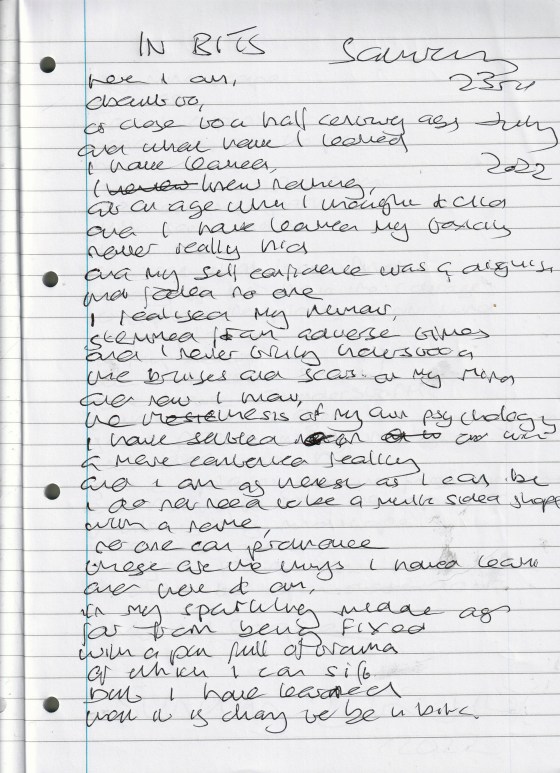 IN BITS
Saturday
23rd
July
2022
here I am,
as close to a half century ago
and what have I learned
I have learned,
I knew nothing,
at an age when I thought I did
and I have learned my toxicity
never really hid
and my self confidence was a disguise
and fooled no one
I realised my humour,
stemmed from adverse times
and I never truly understood
the bruises and scars on my mind
and now I know,
the thesis of my own psychology
I have settled on
a more contented reality
and I am as honest as I can be
I do not need to be a multi sided shape
with a name,
no one can pronounce
these are the things I have learnt
and here I am,
in my sparkling middle age
far from being fixed
with a pan full of trauma
of which I can sift
but I have learned
well it is okay to be in bits.